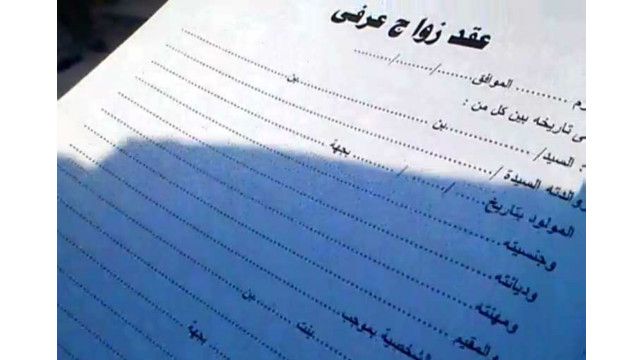 عقد زواج عرفى
الموافق ....../....../......
تاريخه بين كل من :
السيد/ .................... بن .................... بن ....................
والدته السيدة / ....................
المولود بتاريخ ....../....../...... بجهة ....................
وجنسيته ....................
وديانته ....................
ومهنته ....................
والمقيم ....................
بموجب ....................
بنت .................... بن ....................
بجهة ....................